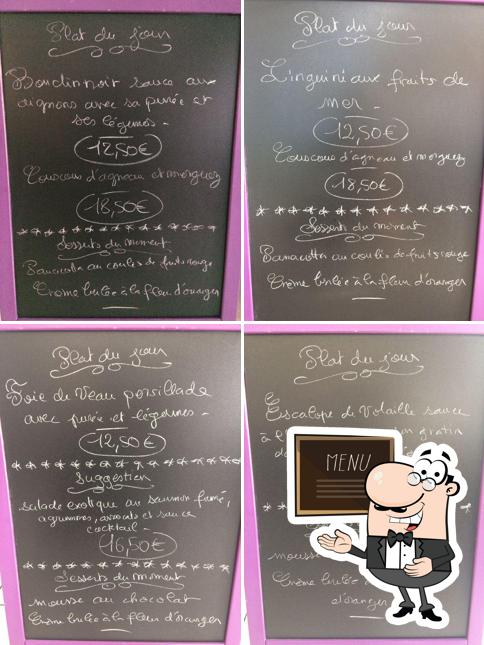 Plat du jour
Boudin noir sauce aux
oignons avec sa purée et
ses légumes -
12,50€
Couscous d'agneau et merguez
18,50€
Desserts du moment
Panacotta au coulis de fruits rouge
Crème brulée à la fleur d'oranger
Plat du jour
Linguini aux fruits de
mer -
12,50€
Couscous d'agneau et merguez
18,50€
Desserts du moment
Panacotta au coulis de fruits rouge
Crème brulée à la fleur d'oranger
Plat du jour
Foie de Veau persillade
avec purée et légumes -
12,50€
Suggestion
salade exotique au saumon fumé,
agrummes, avocats et sauce
cocktail -
16,50€
Desserts du moment
mousse au chocolat
Crème brulée à la fleur d'oranger
Plat du jour
Escalope de Volaille sauce
à l' gratin
MENU
mousse
Crème brulée
d'oranger